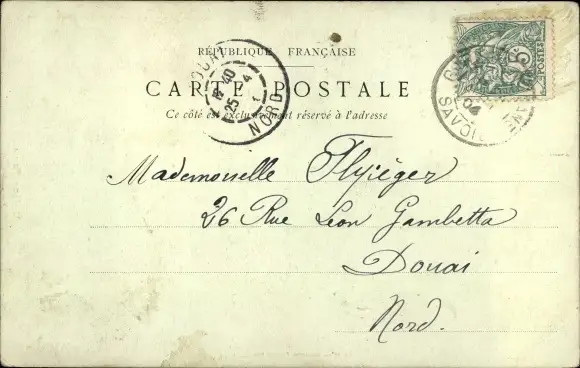 RÉPUBLIQUE FRANÇAISE
CARTE POSTALE
Ce côté est exclusivement réservé à l'adresse
DOUAI
12 40
25 4
NORD
POSTES
04
SAVOIE
Mademoiselle Flyiéger
26 Rue Léon Gambetta
Douai
Nord.